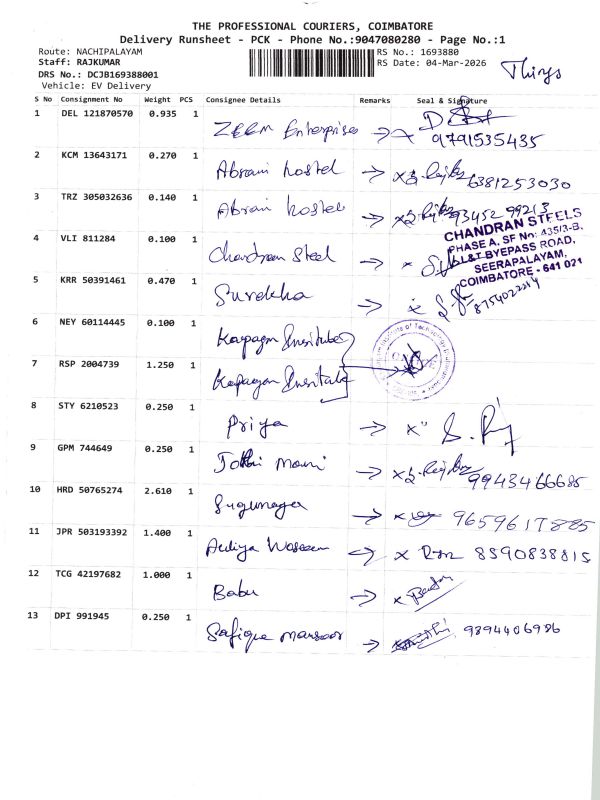 THE PROFESSIONAL COURIERS, COIMBATORE
Delivery Runsheet - PCK - Phone No.:9047080280 - Page No.:1
Route: NACHIPALAYAM RS No.: 1693880
Staff: RAJKUMAR RS Date: 04-Mar-2026
DRS No.: DCJB169388001
Vehicle: EV Delivery
S No Consignment No Weight PCS Consignee Details Remarks Seal & Signature
1 DEL 121870570 0.935 1 Enterprises 9791535435
2 KCM 13643171 0.270 1 hostel 6381253030
3 TRZ 305032636 0.140 1 hostel 93452 99213
CHANDRAN STEELS
PHASE A, SF No: 435/3-B,
L&T BYEPASS ROAD,
SEERAPALAYAM,
COIMBATORE - 641 021
4 VLI 811284 0.100 1 Chandran Steel
5 KRR 50391461 0.470 1 Surekha
6 NEY 60114445 0.100 1 Karpagam
7 RSP 2004739 1.250 1 Karpagam
8 STY 6210523 0.250 1 Priya
9 GPM 744649 0.250 1 Jothi Mani 9943466685
10 HRD 50765274 2.610 1 9659617885
11 JPR 503193392 1.400 1 8590838815
12 TCG 42197682 1.000 1 Babu
13 DPI 991945 0.250 1 Safique Mansoor 9894406986